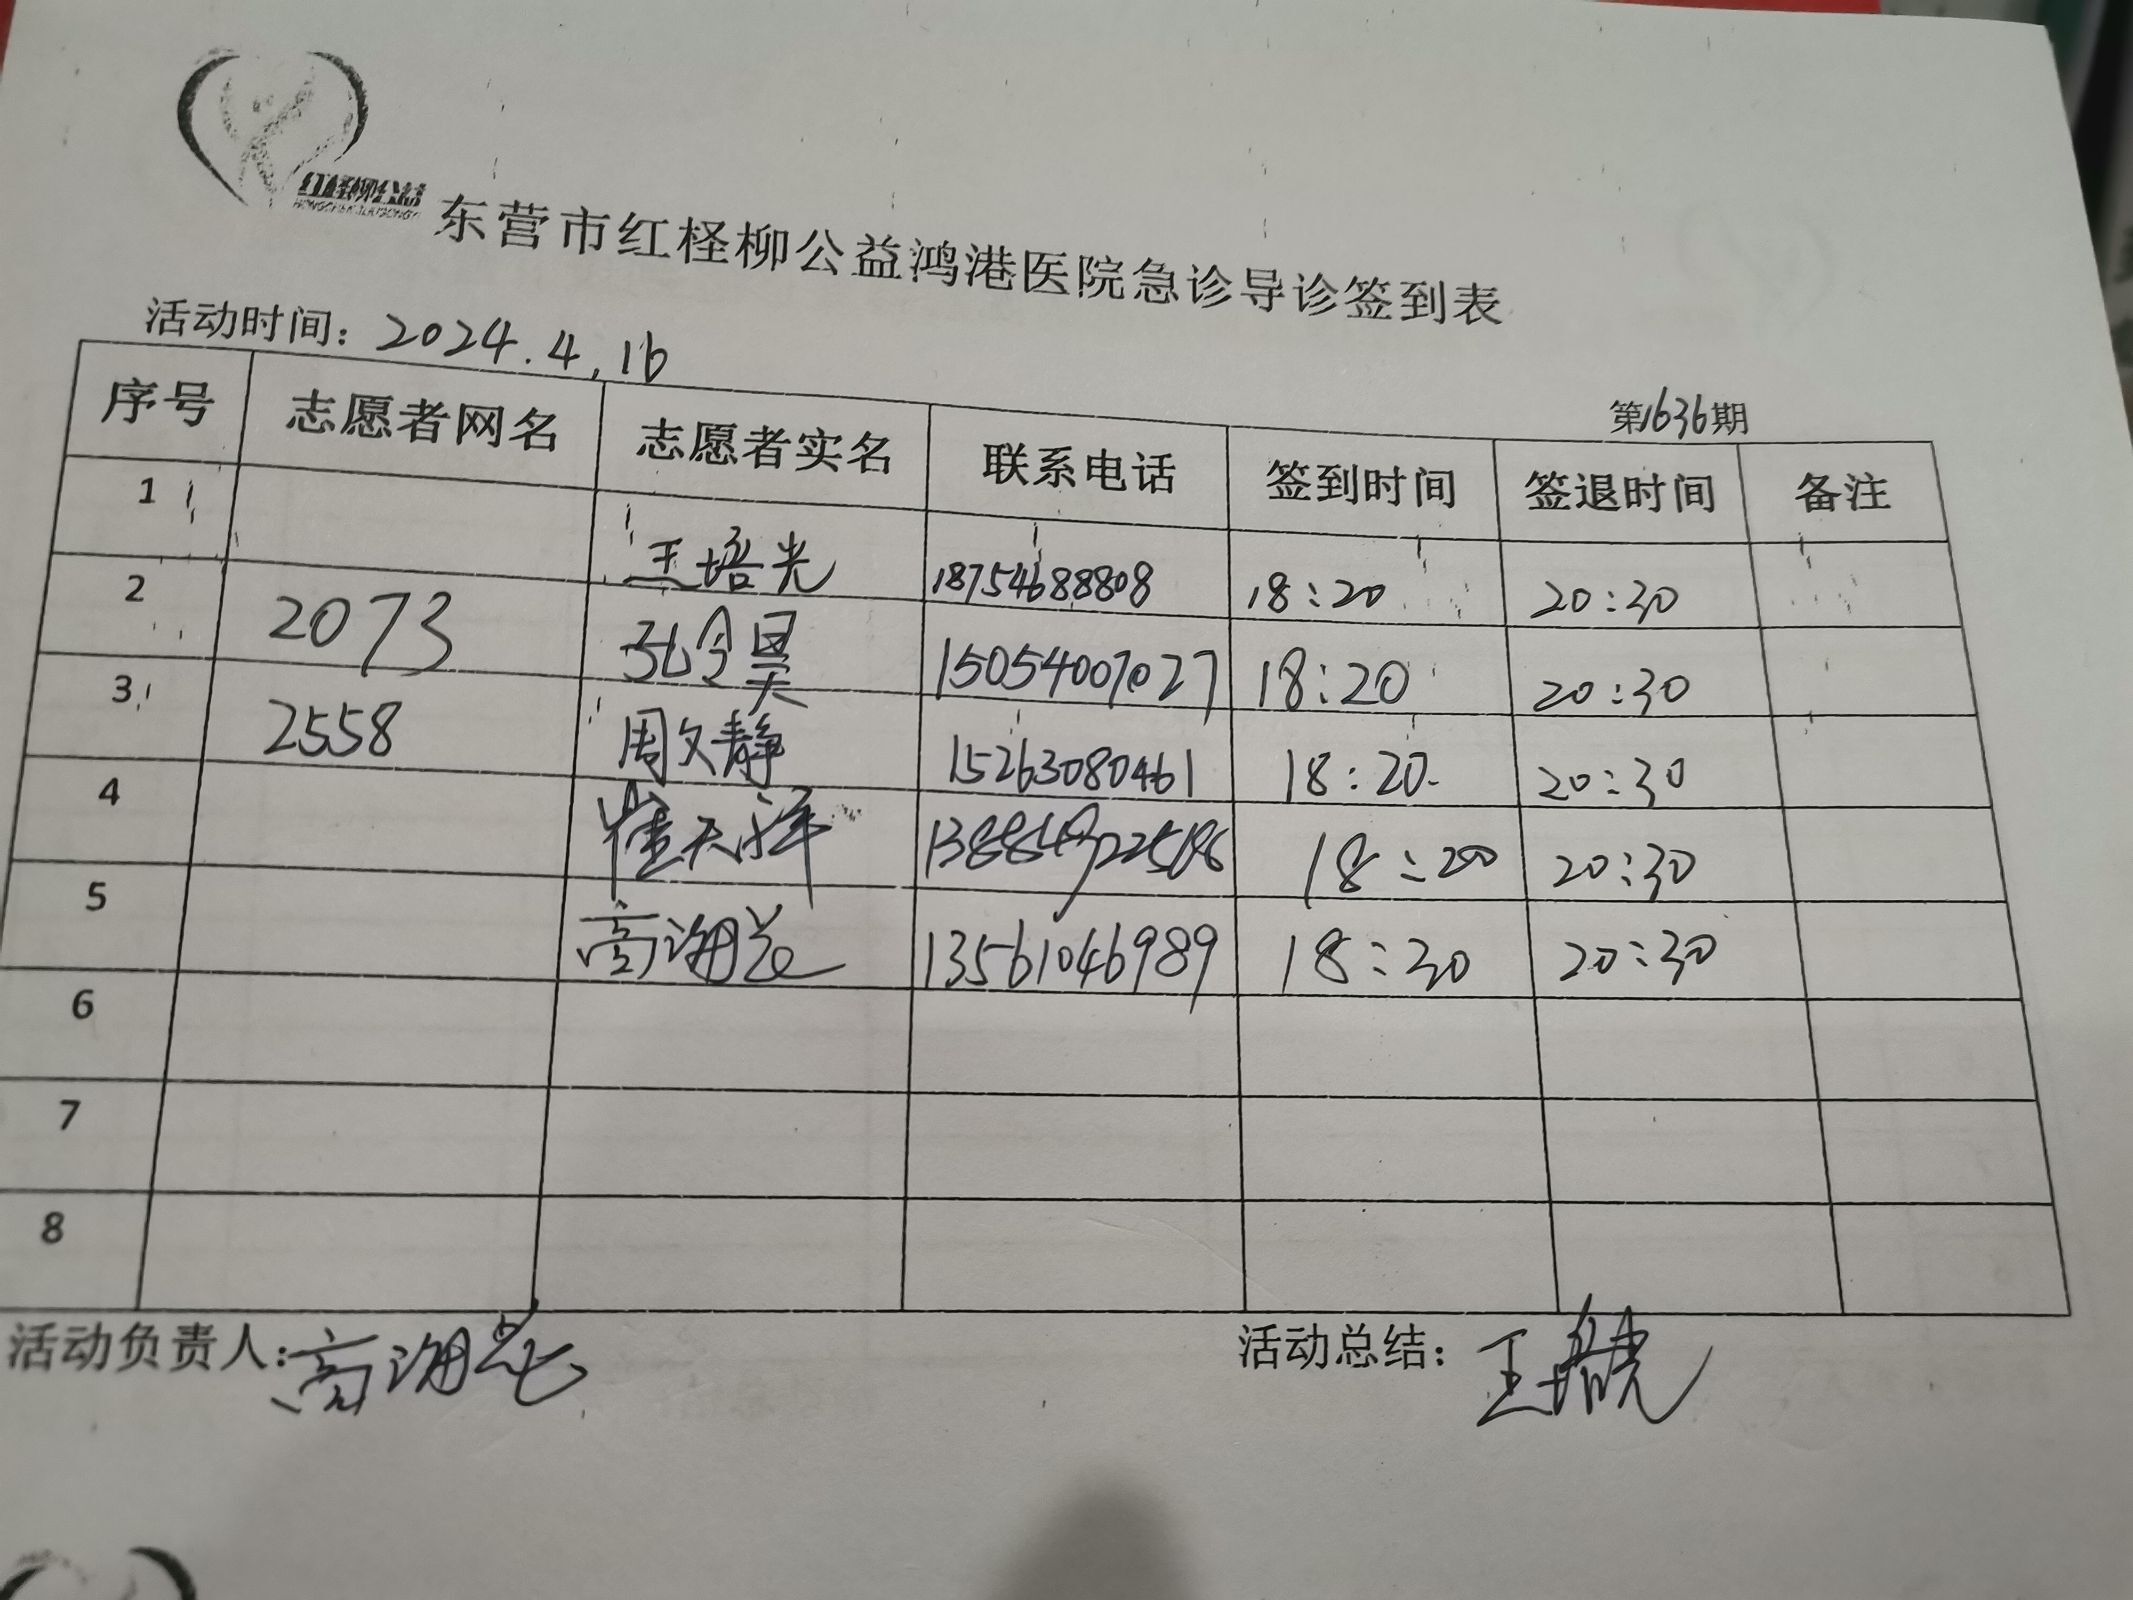 红柽柳公益
东营市红柽柳公益鸿港医院急诊导诊签到表
活动时间：2024.4.16
第1636期
序号 志愿者网名 志愿者实名 联系电话 签到时间 签退时间 备注
1 王培光 18754688808 18:20 20:30
2 2073 孔令昊 15054007027 18:20 20:30
3 2558 周文静 15263080461 18:20 20:30
4 崔天洋 18:20 20:30
5 高海花 13561046989 18:30 20:30
6
7
8
活动负责人：高海花
活动总结：王培光